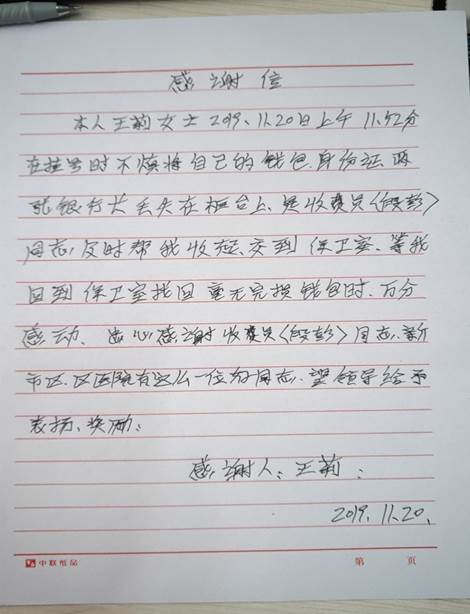 感谢信
本人王莉女士2019.11.20日上午11.52分
在挂号时不慎将自己的钱包.身份证.两
张银行卡丢失在柜台上、是收费员〈段彭〉
同志,及时帮我收起、交到保卫室、等我
回到保卫室找回毫无完损钱包时.万分
感动、忠心感谢收费员〈段彭〉同志.新
市区.区医院有这么一位好同志.望领导给予
表扬、奖励:
感谢人:王莉:
2019.11.20.
中联纸品 第 页